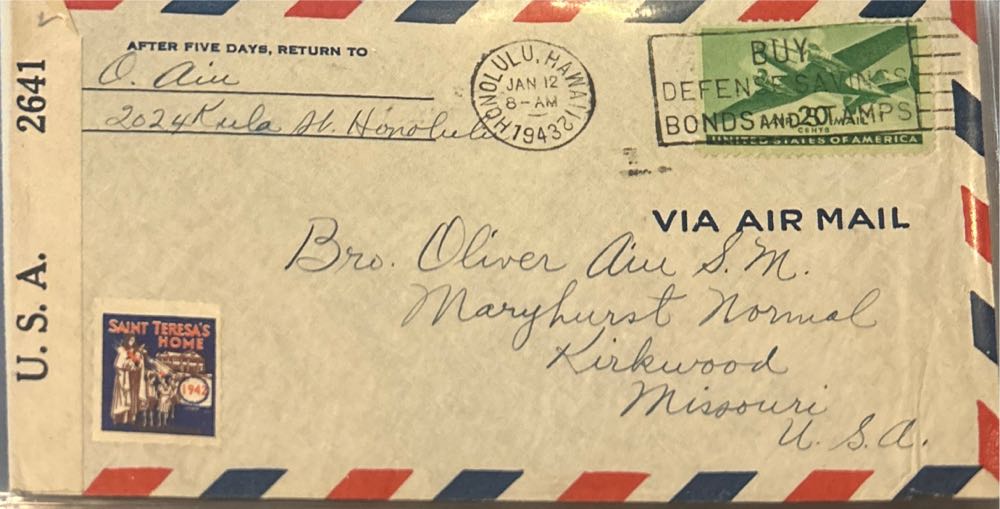 AFTER FIVE DAYS, RETURN TO
O. Aiu
2024 Kula St. Honolulu
HONOLULU, HAWAII
JAN 12
8-AM
1943
2
BUY
DEFENSE SAVINGS
BONDS AND STAMPS
AIR MAIL
20
CENTS
UNITED STATES OF AMERICA
VIA AIR MAIL
Bro. Oliver Aiu S.M.
Maryhurst Normal
Kirkwood
Missouri
U. S. A.
SAINT TERESA'S
HOME
1942
U. S. A. 2641